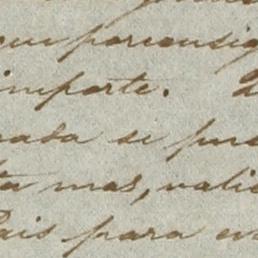 que por consig
importe.
nada se pus
ta mas, valie
Pais para